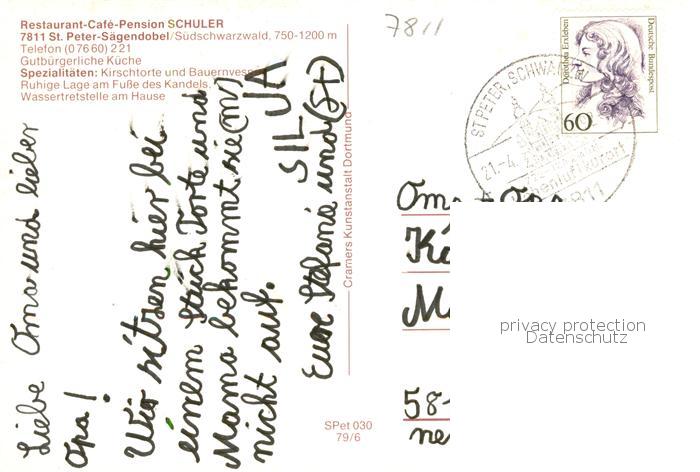 Restaurant-Café-Pension SCHULER
7811 St. Peter-Sägendobel/Südschwarzwald, 750-1200 m
Telefon (07660) 221
Gutbürgerliche Küche
Spezialitäten: Kirschtorte und Bauernvesper
Ruhige Lage am Fuße des Kandels
Wassertretstelle am Hause
7811
Liebe Oma und lieber
Opa!
Wir sitzen hier bei
einem Stück Torte und
Mama bekommt sie (m)
nicht auf.
Eure Stefanie und (St)
SILJA
Cramers Kunstanstalt Dortmund
SPet 030
79/6
Dorothea Erxleben
Deutsche Bundespost
60
ST. PETER, SCHWARZW
21.-4.
7811
Oma + Opa
Kö
M
58-
ne
privacy protection
Datenschutz